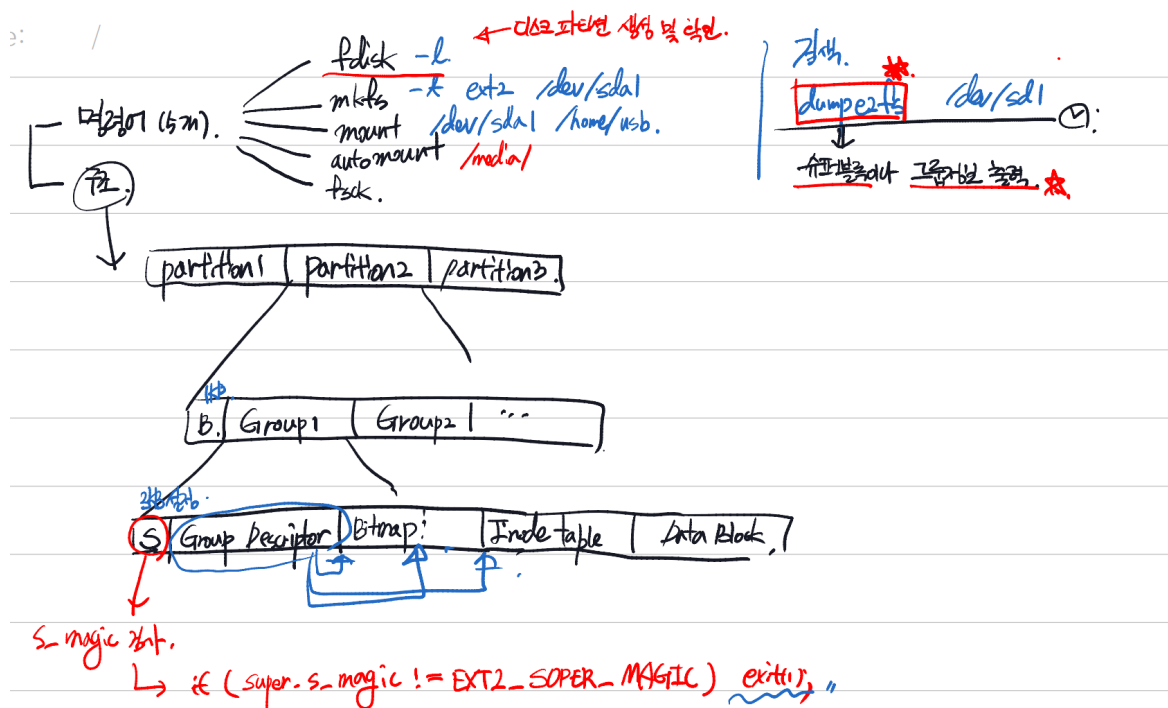 e: /
← 디스크 파티션 생성 및 확인.
fdisk -l
mkfs -t ext2 /dev/sda1
명령어 (5개).
mount /dev/sda1 /home/usb.
automount /media/
fsck.
구조.
검색.
dumpe2fs /dev/sd1
슈퍼블록이나 그룹정보 출력.
partition1 partition2 partition3.
B. Group1 Group2 ...
각종설정.
S Group Descriptor Bitmap Inode table Data Block.
S_magic 검사.
if (super.s_magic != EXT2_SOPER_MAGIC) exit(1);